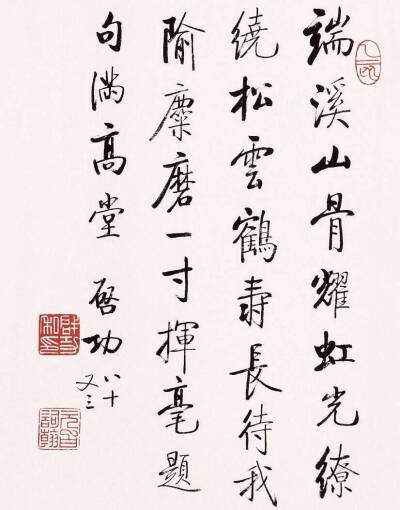 端溪山骨耀虹光繚
繞松雲鶴壽長待我
隃糜磨一寸揮毫題
句滿高堂 啓功
八十
又三